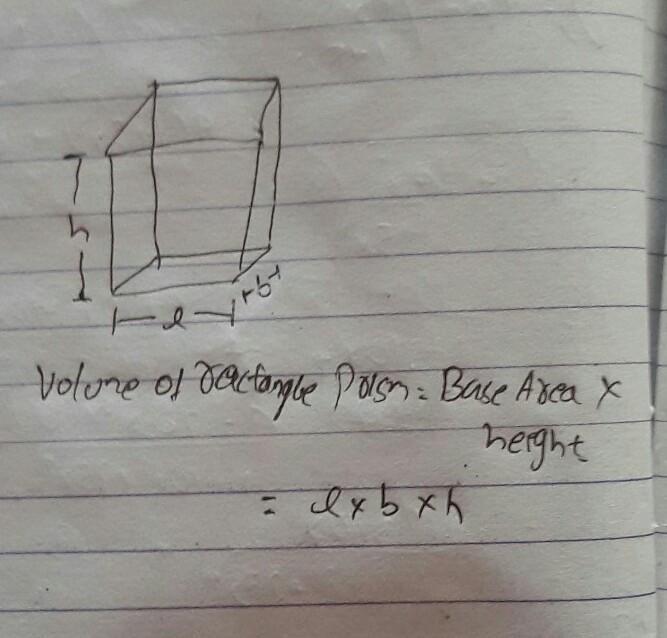 h
l
b
Volume of rectangle Prism = Base Area ×
height
= l × b × h